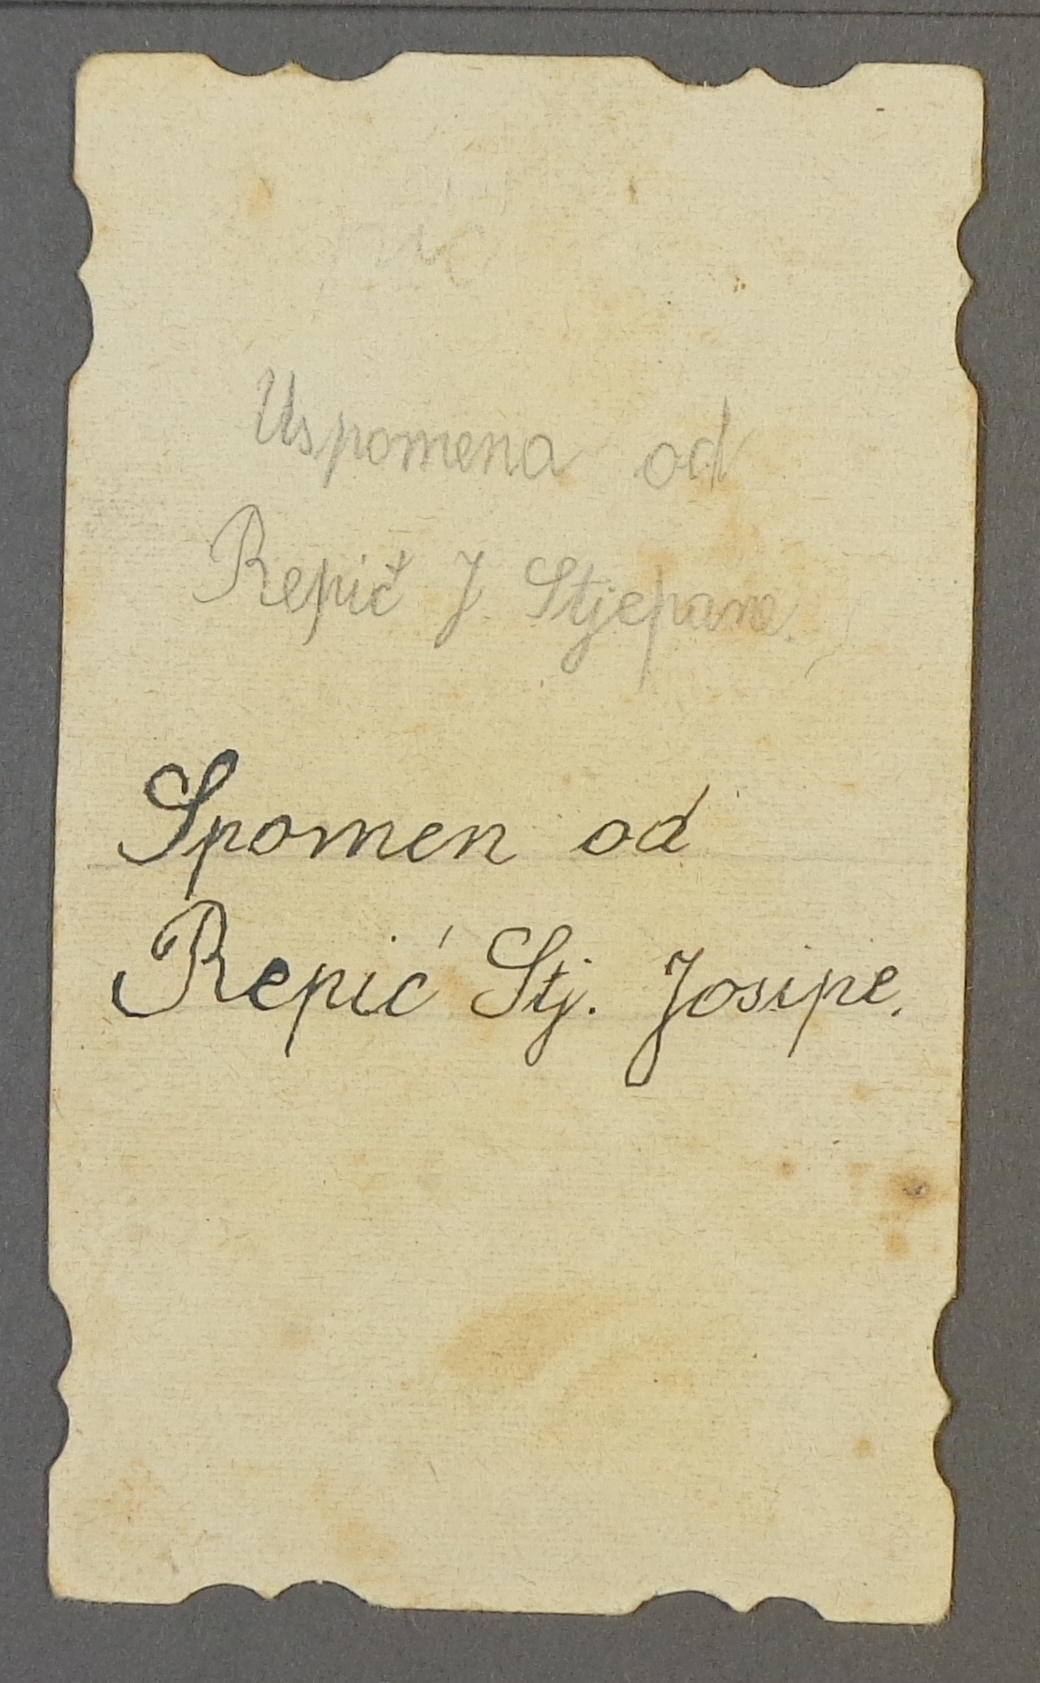 Uspomena od
Repič J. Stjepane.
Spomen od
Repić Stj. Josipe.